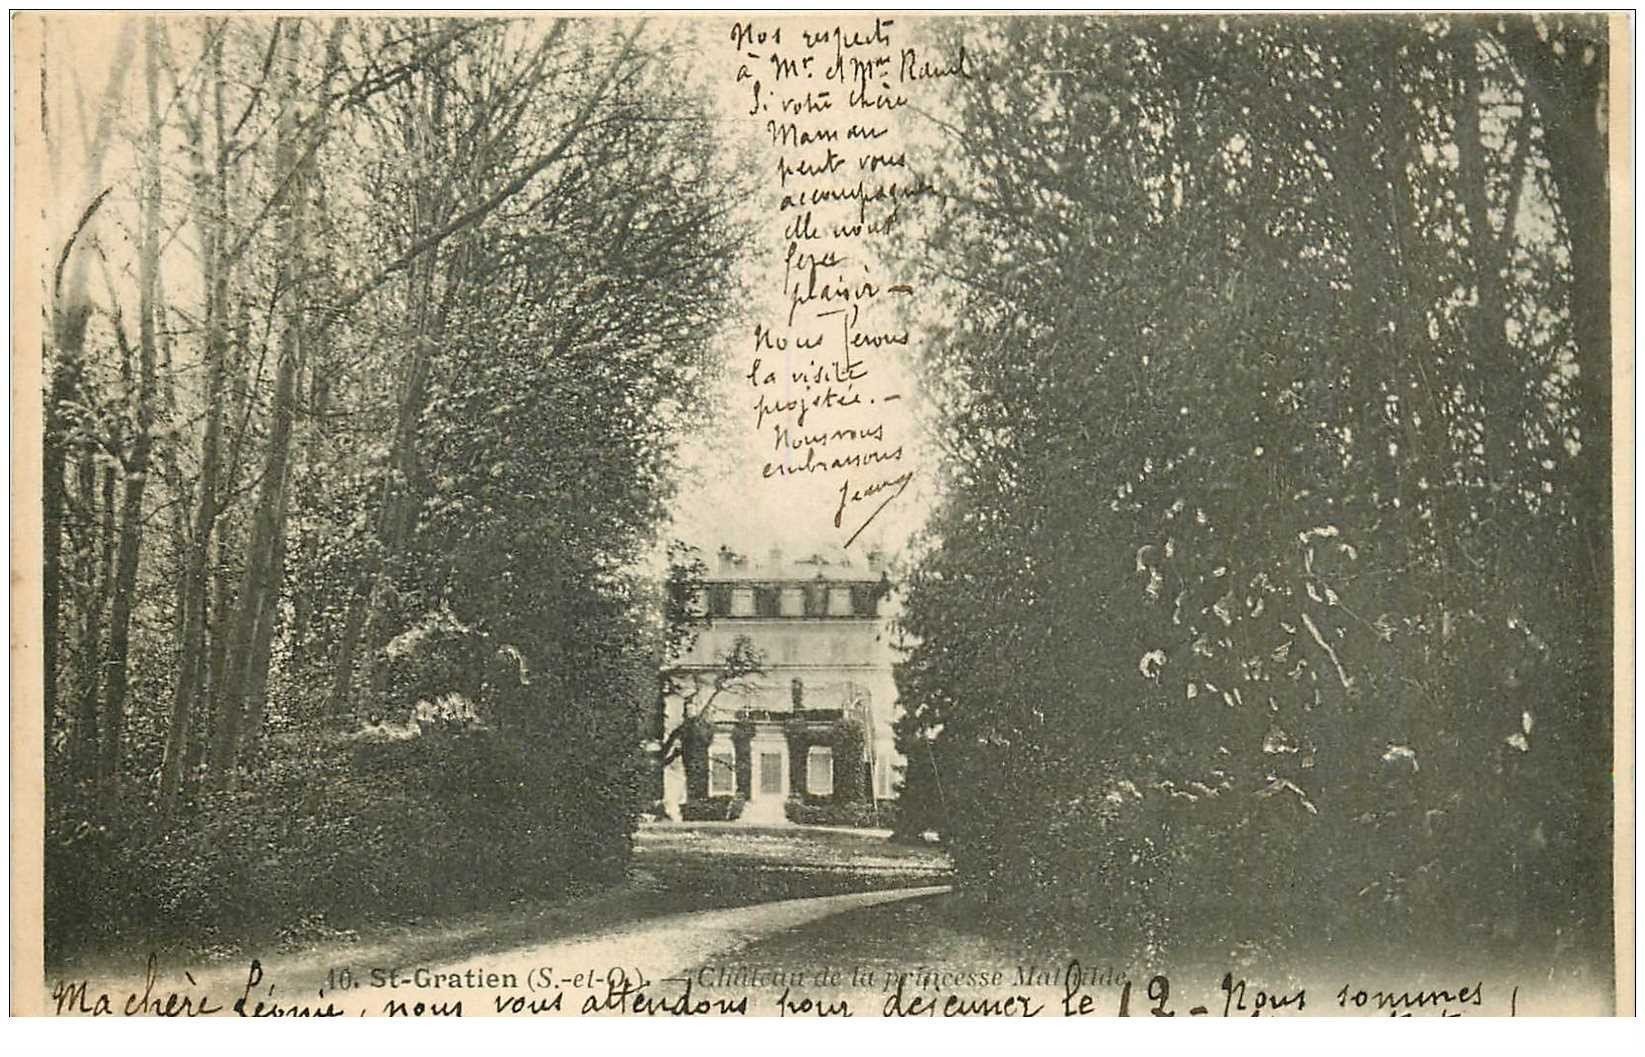 Nos respects
à Mr. et Mme Raoul.
Si votre chère
Maman
peut vous
accompagner,
elle nous
fera
plaisir —
Nous ferons
la visite
projetée. —
Nous vous
embrassons
Jeanne
10. St-Gratien (S.-et-O.). — Château de la princesse Mathilde
Ma chère Léonie, nous vous attendons pour déjeuner le 12 - Nous sommes